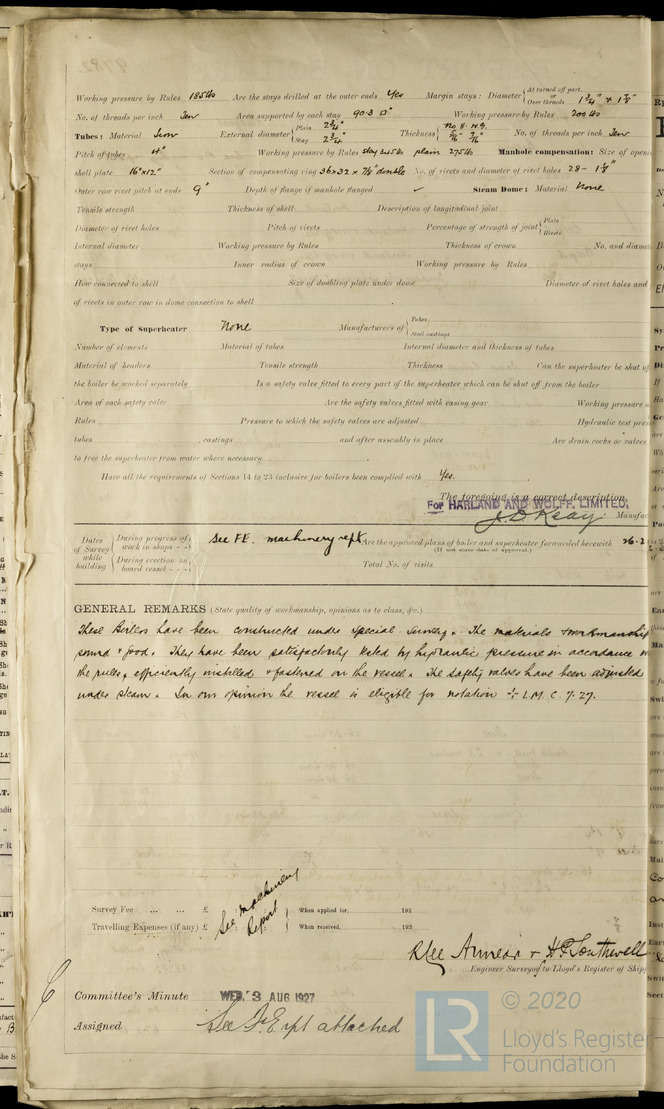 Working pressure by Rules 185 lbs Are the stays drilled at the outer ends Yes Margin stays: Diameter { At turned off part, or Over threads 1 3/4" & 1 7/8"
No. of threads per inch Ten Area supported by each stay 90.3 □" Working pressure by Rules 200 lbs
Tubes: Material Iron External diameter { Plain 2 3/4" Stay 2 3/4" Thickness { No 8. W.G. 5/16" 7/16" No. of threads per inch Ten
Pitch of tubes 4" Working pressure by Rules stay 345 lbs plain 275 lbs Manhole compensation: Size of openi
shell plate 16" x 12" Section of compensating ring 36 x 32 x 7/8" double No. of rivets and diameter of rivet holes 28 - 1 1/8"
Outer row rivet pitch at ends 9" Depth of flange if manhole flanged ✓ Steam Dome: Material None
Tensile strength Thickness of shell Description of longitudinal joint
Diameter of rivet holes Pitch of rivets Percentage of strength of joint { Plate Rivets
Internal diameter Working pressure by Rules Thickness of crown No. and diamet
stays Inner radius of crown Working pressure by Rules
How connected to shell Size of doubling plate under dome Diameter of rivet holes and
of rivets in outer row in dome connection to shell
Type of Superheater None Manufacturers of { Tubes Steel castings
Number of elements Material of tubes Internal diameter and thickness of tubes
Material of headers Tensile strength Thickness Can the superheater be shut of
the boiler be worked separately Is a safety valve fitted to every part of the superheater which can be shut off from the boiler
Area of each safety valve Are the safety valves fitted with easing gear Working pressure
Rules Pressure to which the safety valves are adjusted Hydraulic test pres
tubes , castings and after assembly in place Are drain cocks or valves
to free the superheater from water where necessary
Have all the requirements of Sections 14 to 23 inclusive for boilers been complied with Yes.
The foregoing is a correct description,
For HARLAND AND WOLFF, LIMITED,
J. D. Keay. Manufac
Dates of Survey while building { During progress of work in shops - - During erection on board vessel - - - } See F.E. machinery rept Are the approved plans of boiler and superheater forwarded herewith 26.2
(If not state date of approval.)
Total No. of visits
GENERAL REMARKS (State quality of workmanship, opinions as to class, &c.)
These Boilers have been constructed under special survey. The materials & workmanship
sound & good. They have been satisfactorily tested by hydraulic pressure in accordance w
the rules, efficiently installed & fastened on the vessel. The safety valves have been adjusted
under steam. In our opinion the vessel is eligible for notation + L.M.C. 7.27.
Survey Fee ... ... £ When applied for, 192
Travelling Expenses (if any) £ When received, 192
See Machinery Report
& H.P. Southwell
Engineer Surveyor to Lloyd's Register of Ship
Committee's Minute WED. 3 AUG 1927
Assigned See F.E. rpt attached
LR © 2020
Lloyd's Register
Foundation